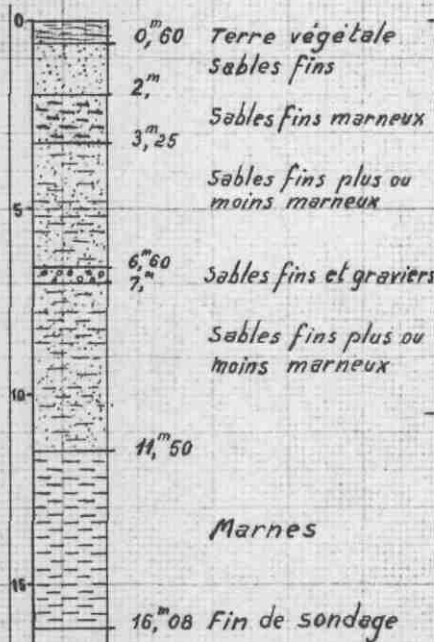 0
0,ᵐ60 Terre végétale
Sables fins
2,ᵐ
Sables fins marneux
3,ᵐ25
Sables fins plus ou
moins marneux
5
6,ᵐ60
7,ᵐ Sables fins et graviers
Sables fins plus ou
moins marneux
10
11,ᵐ50
Marnes
15
16,ᵐ08 Fin de sondage